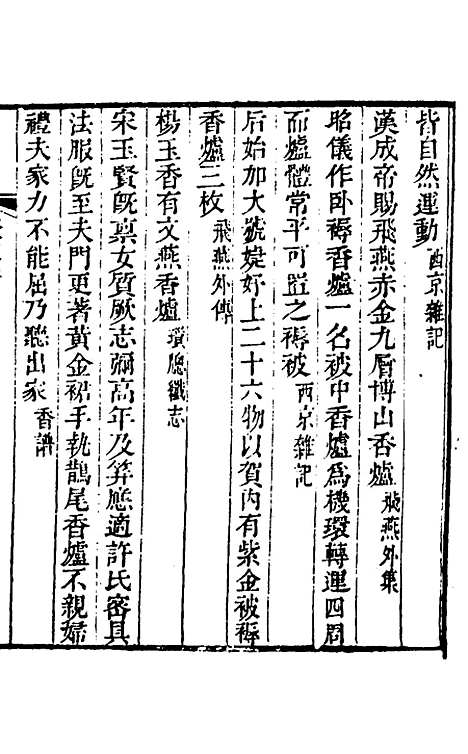 皆自然運動西京雜記
漢成帝賜飛燕赤金九層博山香爐飛燕外集
昭儀作卧褥香爐一名被中香爐爲機環轉運四周
而爐體常平可置之褥被西京雜記
后始加大號婕妤上二十六物以賀内有紫金被褥
香爐三枚飛燕外傳
楊玉香有文燕香爐瑣牕纖志
宋玉賢旣禀女質厥志彌高年及笄應適許氏宻具
法服旣至夫門更著黃金裙手執鵲尾香爐不親婦
禮夫家力不能屈乃聽出家香譜